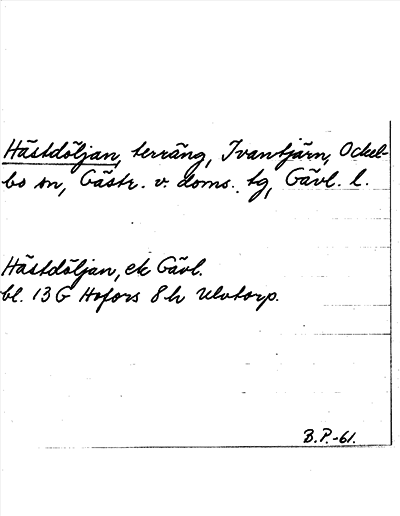 Hästdöljan, terräng, Ivantjärn, Ockel-
bo sn, Gästr. v. doms. tg, Gävl. l.
Hästdöljan, ek Gävl.
bl. 13 G Hofors 8 h Ulvtorp.
B.P.-61.